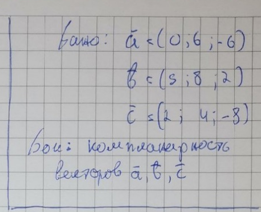 Дано: ā = (0; 6; -6)
b̄ = (5; 8; 2)
c̄ = (2; 4; -8)
Док: компланарность
векторов ā, b̄, c̄